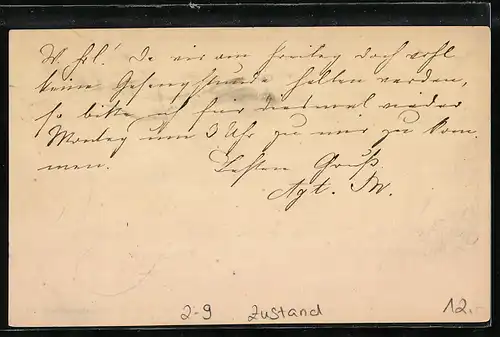 W. Frl.! Da wir am Freitag doch wohl
keine Gesangstunde halten werden,
so bitte ich für diesmal wieder
Montag um 3 Uhr zu mir zu kom-
men. Besten Gruß
Agt. M.
2-9 Zustand 12.-